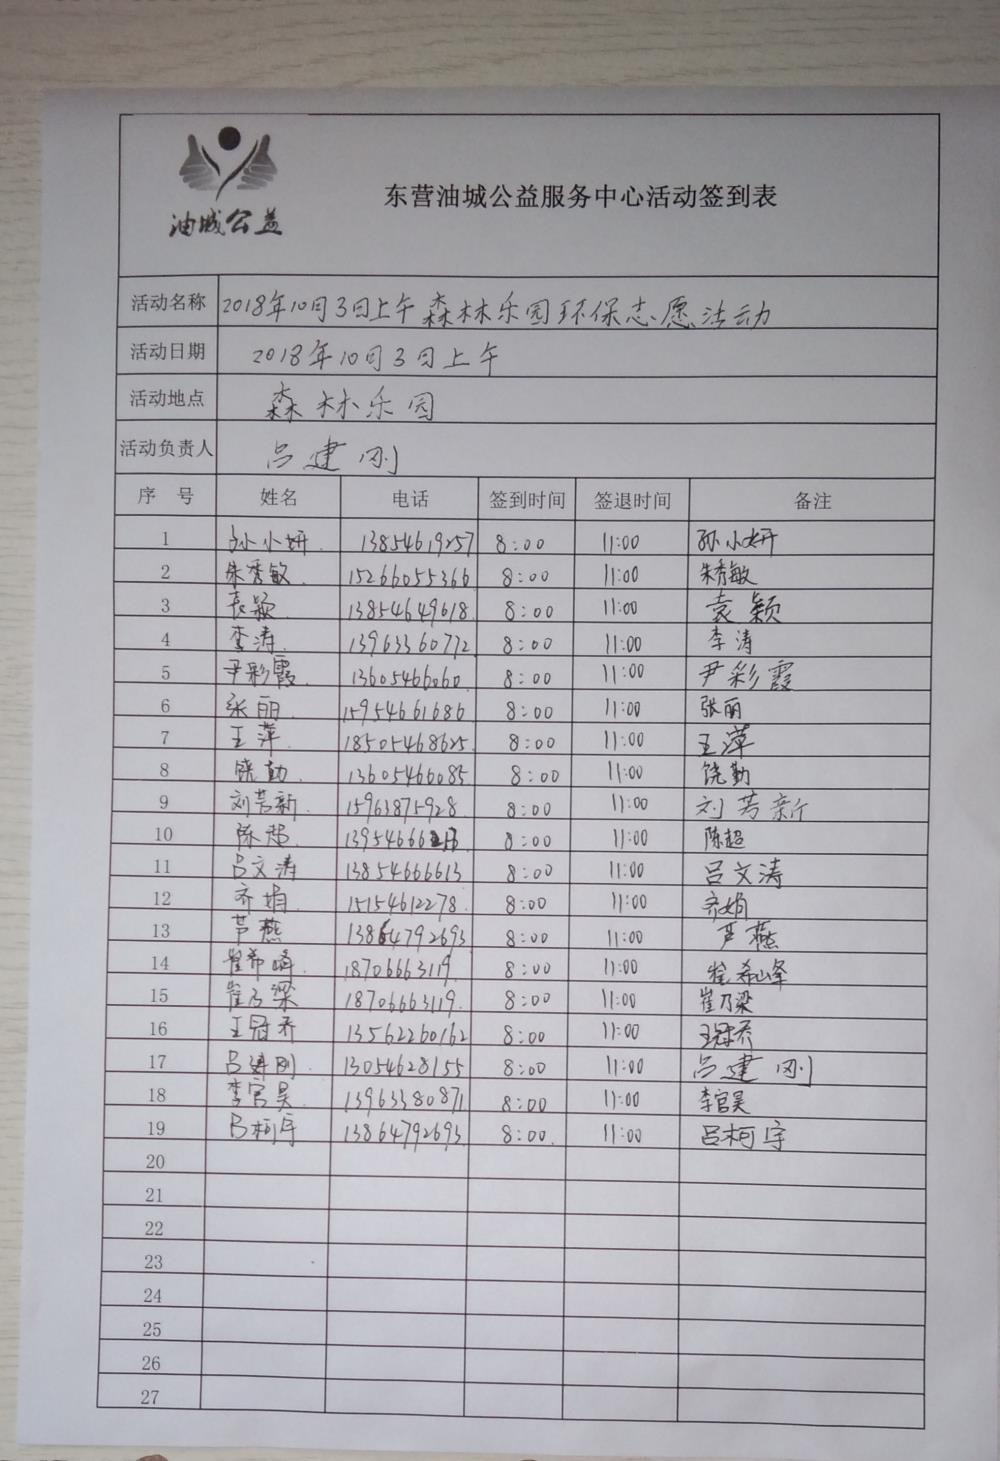 油城公益
东营油城公益服务中心活动签到表
活动名称 2018年10月3日上午森林乐园环保志愿活动
活动日期 2018年10月3日上午
活动地点 森林乐园
活动负责人 吕建刚
序 号 姓名 电话 签到时间 签退时间 备注
1 孙小妍 13854619257 8:00 11:00 孙小妍
2 朱秀敏 15266055366 8:00 11:00 朱秀敏
3 袁颖 13854649618 8:00 11:00 袁颖
4 李涛 13963360772 8:00 11:00 李涛
5 尹彩霞 13605466060 8:00 11:00 尹彩霞
6 张丽 15954661686 8:00 11:00 张丽
7 王萍 18505468625 8:00 11:00 王萍
8 饶勤 13605466085 8:00 11:00 饶勤
9 刘芳新 15963875928 8:00 11:00 刘芳新
10 陈超 8:00 11:00 陈超
11 吕文涛 13854666613 8:00 11:00 吕文涛
12 齐娟 15154612278 8:00 11:00 齐娟
13 芦燕 13864792693 8:00 11:00 芦燕
14 崔希峰 18706663119 8:00 11:00 崔希峰
15 崔乃梁 18706663119 8:00 11:00 崔乃梁
16 王冠乔 13562260162 8:00 11:00 王冠乔
17 吕建刚 13054628155 8:00 11:00 吕建刚
18 李官昊 13963380871 8:00 11:00 李官昊
19 吕柯宇 13864792693 8:00 11:00 吕柯宇
20
21
22
23
24
25
26
27